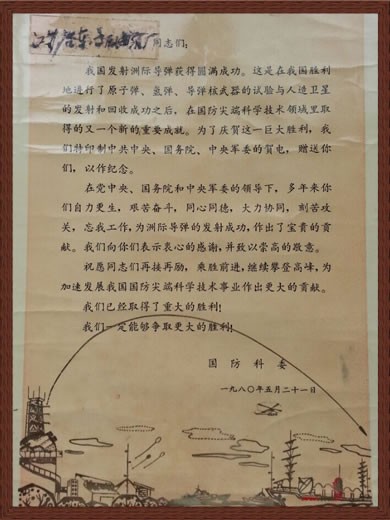 同志们:
我国发射洲际导弹获得圆满成功。这是在我国胜利
地进行了原子弹、氢弹、导弹核武器的试验与人造卫星
的发射和回收成功之后，在国防尖端科学技术领域里取
得的又一个新的重要成就。为了庆贺这一巨大胜利，我
们特印制中共中央、国务院、中央军委的贺电，赠送你
们，以作纪念。
在党中央、国务院和中央军委的领导下，多年来你
们自力更生，艰苦奋斗，同心同德，大力协同，刻苦攻
关，忘我工作，为洲际导弹的发射成功，作出了宝贵的贡
献。我们向你们表示衷心的感谢，并致以崇高的敬意。
祝愿同志们再接再励，乘胜前进，继续攀登高峰，为
加速发展我国国防尖端科学技术事业作出更大的贡献。
我们已经取得了重大的胜利!
我们一定能够争取更大的胜利!
国防科委
一九八〇年五月二十一日